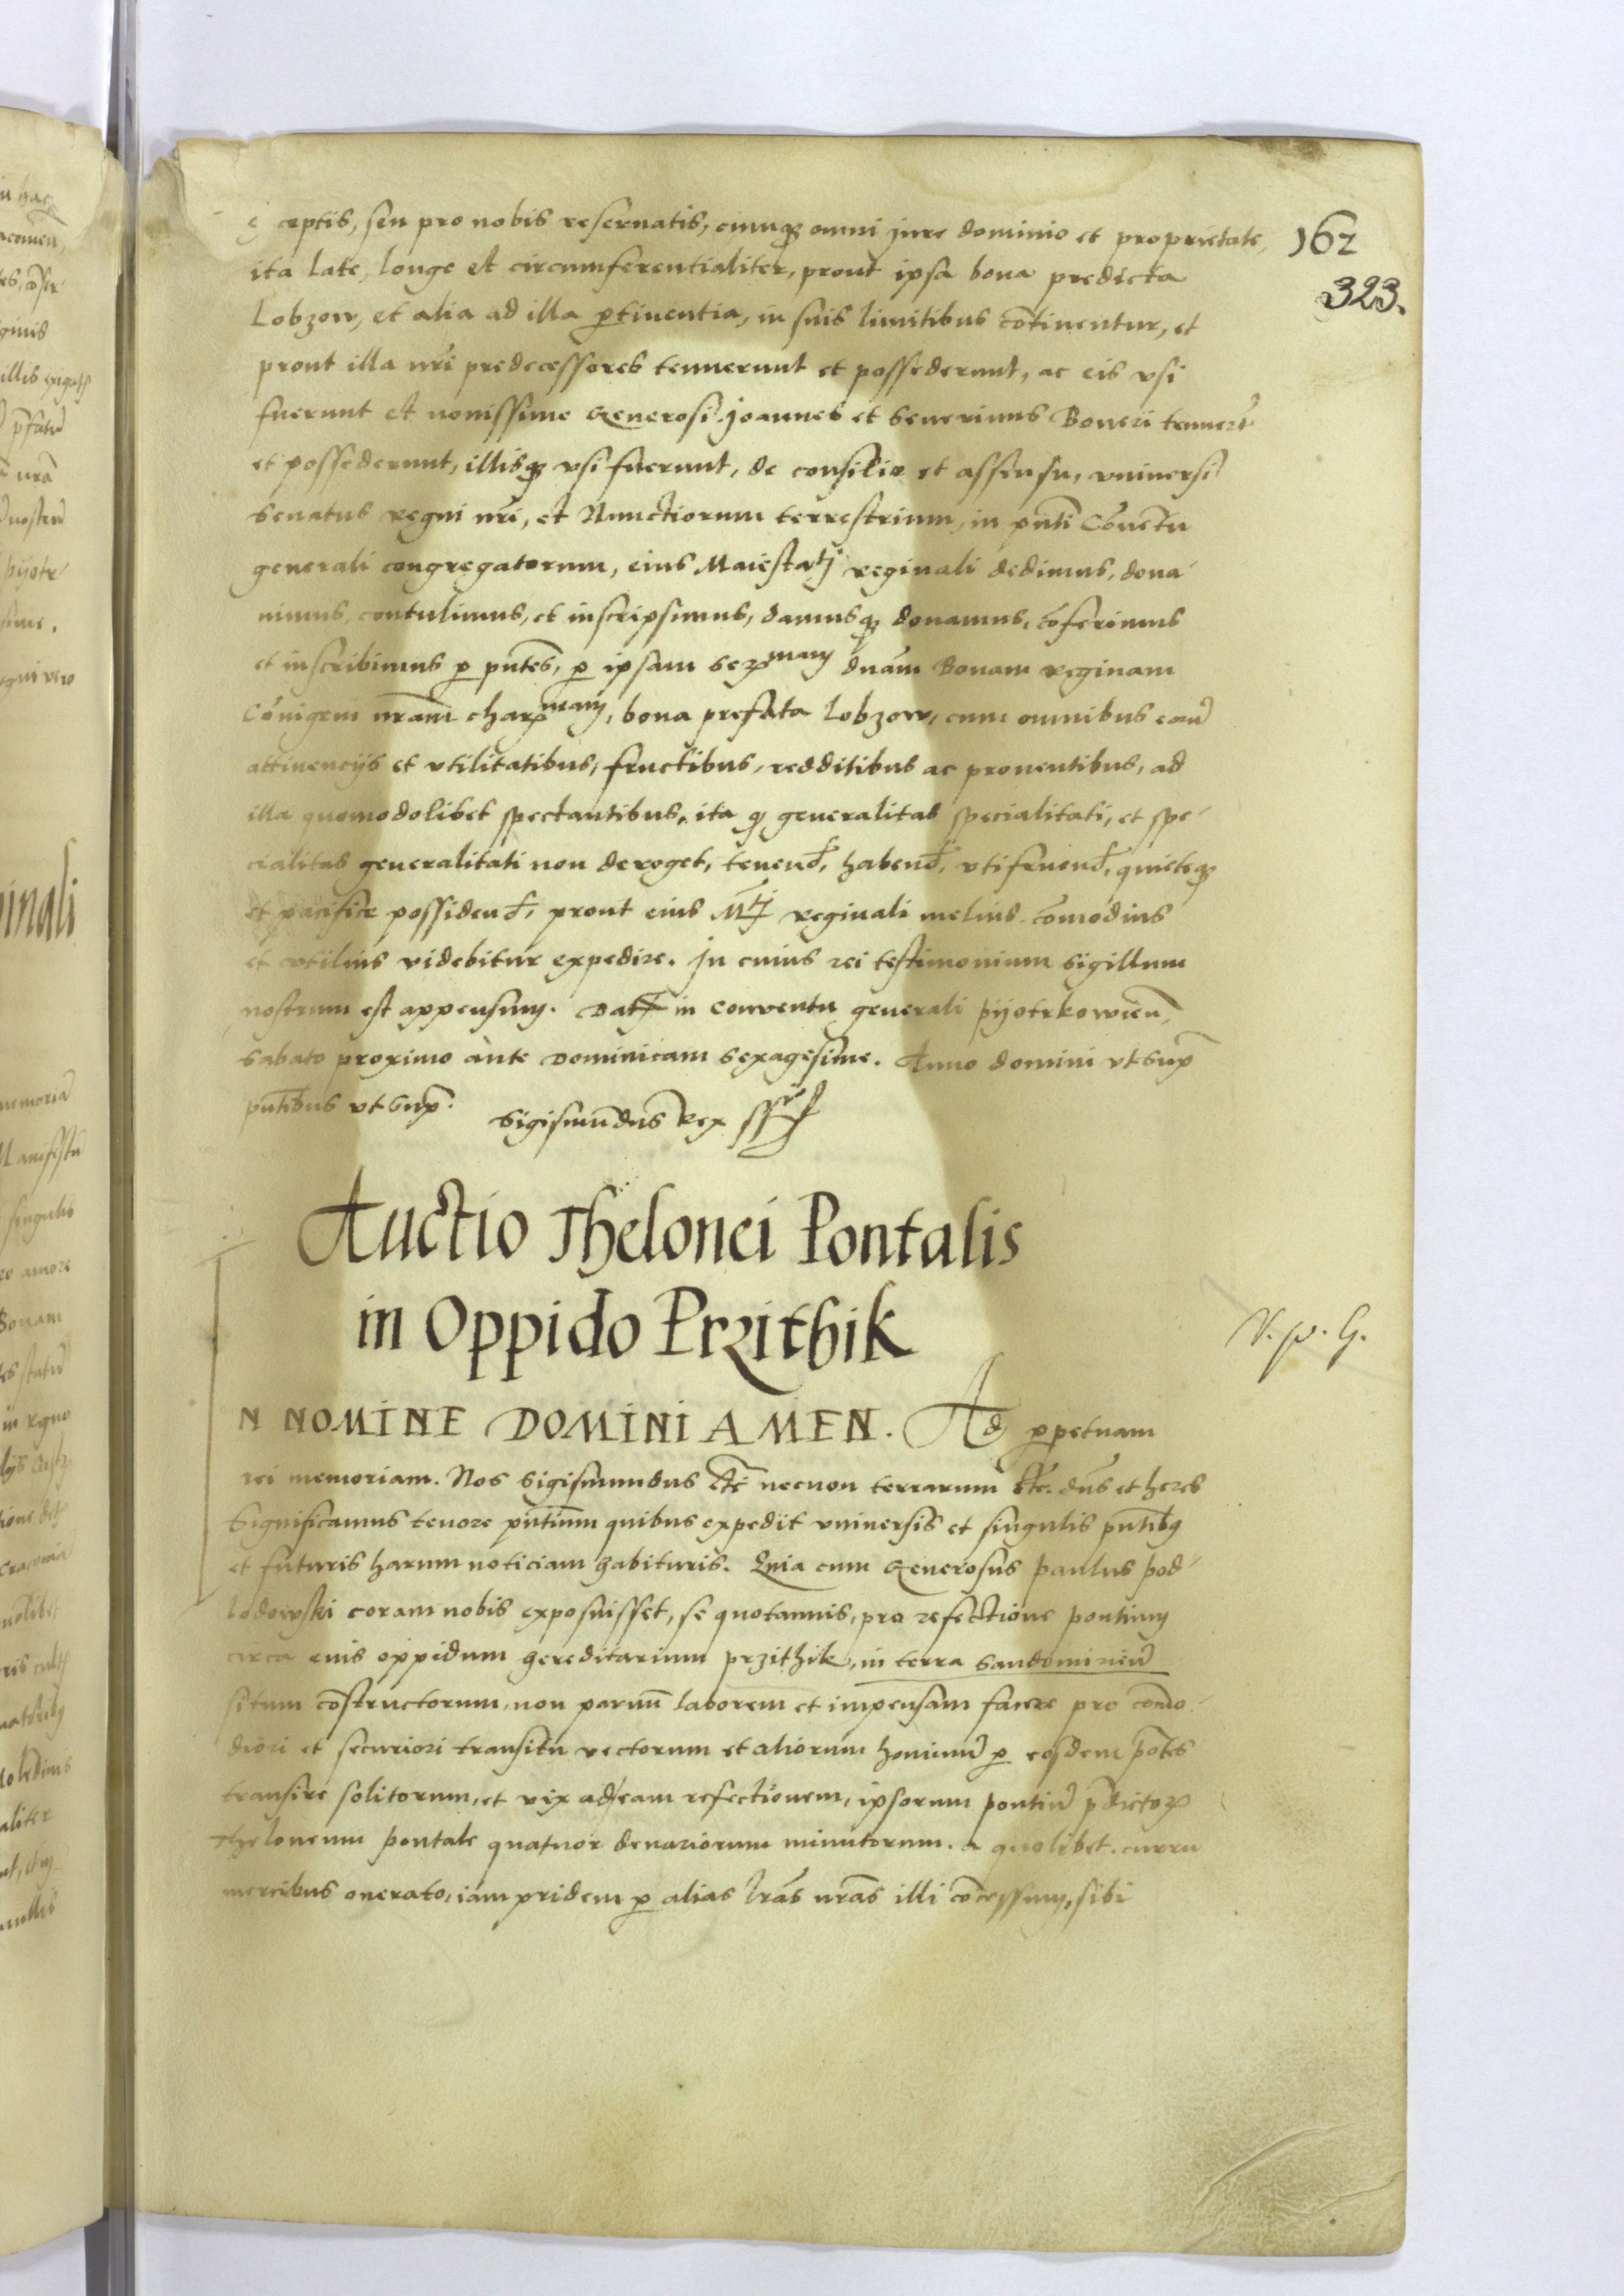 162
323.
ceptis, seu pro nobis reseruatis, cumqꝫ omni jure dominio et proprietate,
ita late, longe et circumferentialiter, prout ipsa bona predicta
Lobzow, et alia ad illa ꝑtinentia, in suis limitibus cōtinentur, et
prout illa nr̄i predecessores tenuerunt et possederunt, ac eis vsi
fuerunt et nouissime Generosi Joannes et Seuerinus Boneri tenuerūt
et possederunt, illisqꝫ vsi fuerunt, de consilio et assensu, vniuersi
Senatus regni nr̄i, et Nunctiorum terrestrium, in pn̄ti Cōuetu
generali congregatorum, eius Maiestatj reginali dedimus, dona-
uimus, contulimus, et inscripsimus, damusqꝫ donamus, cōferimus
et inscribimus ꝑ pn̄tes, ꝑ ipsam Serᵐᵃᵐ dnām Bonam reginam
Cōnigem nrām charᵐᵃᵐ, bona prefata Lobzow, cum omnibus earū
attinencijs et vtilitatibus, fructibus, redditibus ac prouentibus, ad
illa quomodolibet spectantibus, ita qꝫ generalitas specialitati, et spe-
cialitas generalitati non deroget, tenend̄, habend̄, vtifruend̄, quieteqꝫ
et pacifice possidend̄, prout eius Mtj reginali melius cōmodius
et vtilius videbitur expedire. In cuius rei testimonium Sigillum
nostrum est appensum. Dat in Conventu generali pijotrkowien̄,
Sabato proximo ante Dominicam Sexagesime. Anno domini vt Supͣ
pn̄tibus vt Supͣ. Sigismūdus Rex ss
Auctio Thelonei Pontalis
in Oppido Przithik
V. p. G.
N NOMINE DOMINI AMEN. Ad ꝑpetuam
rei memoriam. Nos Sigismundus etc̄ necnon terrarum etc̄. dn̄s et heres
Significamus tenore pn̄tium quibus expedit vniuersis et singulis pn̄tibꝫ
et futuris harum noticiam habituris. Quia cum Generosus paulus pod-
lodowski coram nobis exposuisset, se quotannis, pro refectione pontium
circa euis oppidum hereditarium przithik, in terra Sandomirien̄
situm cōstructorum, non paruū laborem et impensam facere pro cōmo-
diori et securiori transitu vectorum et aliorum hominū ꝑ eosdem pōtes
transire solitorum, et vix ad eam refectionem, ipsorum pontiū p̄dictoꝝ
Theloneum pontale quatuor denariorum minutorum a quolibet curru
mercibus onerato, iam pridem ꝑ alias lrās nrās illi cōcessum, sibi